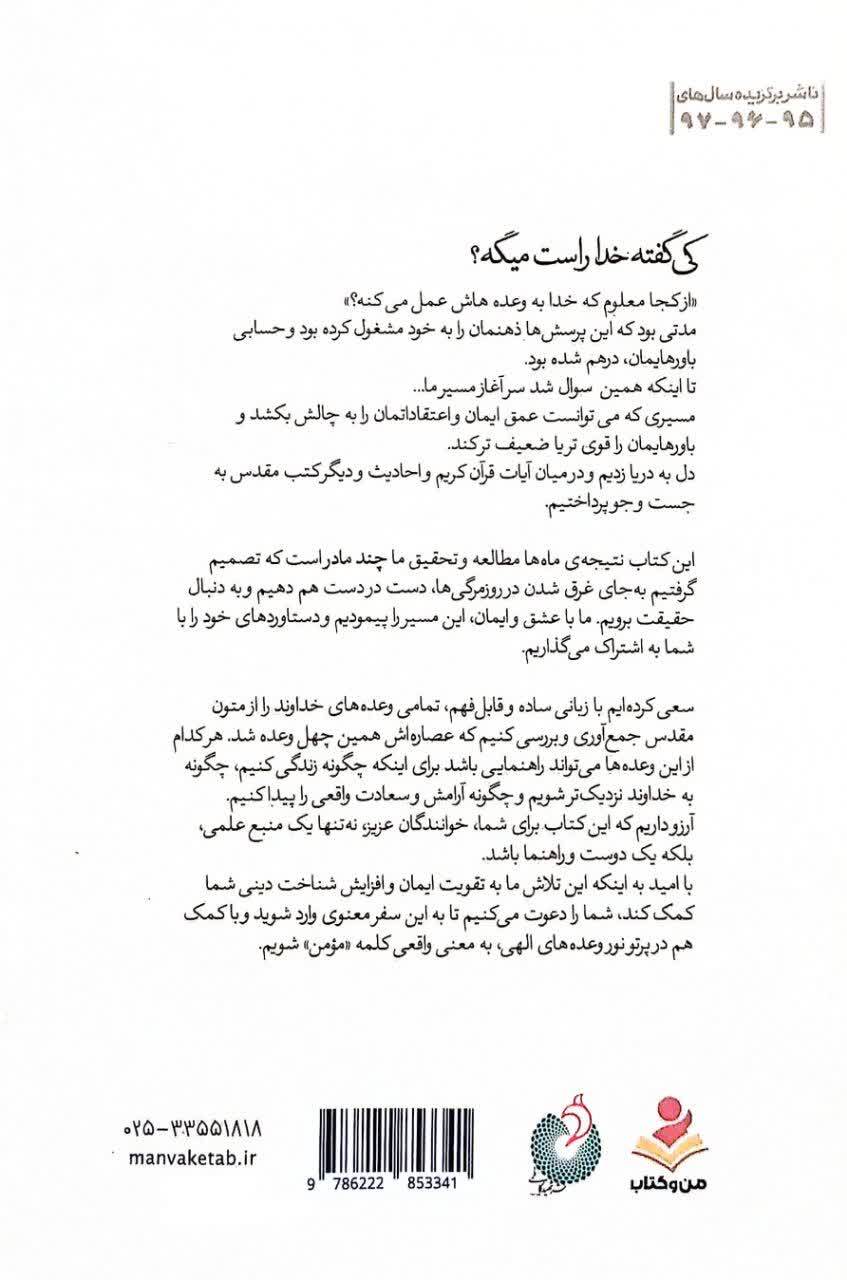 ناشر برگزیده سال‌های
۹۵-۹۶-۹۷
کی گفته خدا راست میگه؟
«از کجا معلوم که خدا به وعده هاش عمل می‌کنه؟»
مدتی بود که این پرسش‌ها ذهنمان را به خود مشغول کرده بود و حسابی
باورهایمان، درهم شده بود.
تا اینکه همین سوال شد سرآغاز مسیر ما...
مسیری که می توانست عمق ایمان و اعتقاداتمان را به چالش بکشد و
باورهایمان را قوی تر یا ضعیف تر کند.
دل به دریا زدیم و در میان آیات قرآن کریم و احادیث و دیگر کتب مقدس به
جست و جو پرداختیم.
این کتاب نتیجه‌ی ماه‌ها مطالعه و تحقیق ما چند مادر است که تصمیم
گرفتیم به‌جای غرق شدن در روزمرگی‌ها، دست در دست هم دهیم و به دنبال
حقیقت برویم. ما با عشق و ایمان، این مسیر را پیمودیم و دستاوردهای خود را با
شما به اشتراک می‌گذاریم.
سعی کرده‌ایم با زبانی ساده و قابل‌فهم، تمامی وعده‌های خداوند را از متون
مقدس جمع‌آوری و بررسی کنیم که عصاره‌اش همین چهل وعده شد. هر کدام
از این وعده‌ها می‌تواند راهنمایی باشد برای اینکه چگونه زندگی کنیم، چگونه
به خداوند نزدیک‌تر شویم و چگونه آرامش و سعادت واقعی را پیدا کنیم.
آرزو داریم که این کتاب برای شما، خوانندگان عزیز، نه‌تنها یک منبع علمی،
بلکه یک دوست و راهنما باشد.
با امید به اینکه این تلاش ما به تقویت ایمان و افزایش شناخت دینی شما
کمک کند، شما را دعوت می‌کنیم تا به این سفر معنوی وارد شوید و با کمک
هم در پرتو نور وعده‌های الهی، به معنی واقعی کلمه «مؤمن» شویم.
من و کتاب
۰۲۵-۳۳۵۵۱۸۱۸
manvaketab.ir
9 786222 853341